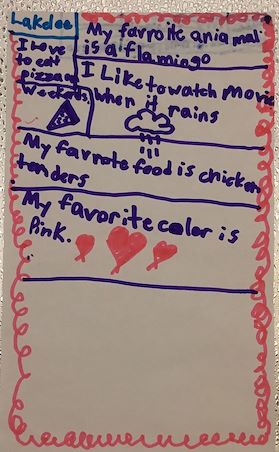 Lakelee
I Love
to eat
pizza on
Weekends.
My favroite aniamal
is a flamingo
I Like to watch movie
when it rains
My favroite food is chicken
tenders
My favorite color is
Pink.